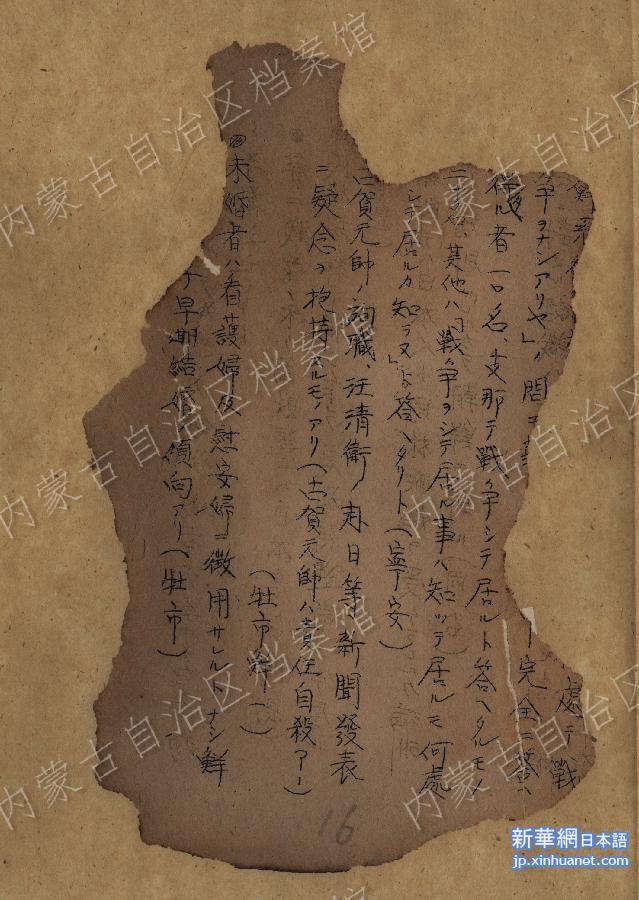 處テ戰
争ヲナシアリヤ」ノ問ニ
完全ニ答ヘ
得ル者一口名、支那テ戰争シテ居ルト答ヘタルモノ
二蓍、其他ハ「戰争ヲシテ居ル事ハ知ツテ居ルモ何處
シテ居ルカ知ラヌ」ト答ヘタリト(寧安)
古賀元帥ノ殉職、汪清衛ノ赴日等、新聞發表
ニ疑念ヲ抱持スルモノアリ(古賀元帥ハ責任自殺アー)
(牡市鮮)
◎未婚者ハ看護婦及慰安婦ニ徴用サレルトナシ鮮
早期結婚ノ傾向アリ(牡市)
16
内蒙古自治区档案馆
新華網日本語
jp.xinhuanet.com